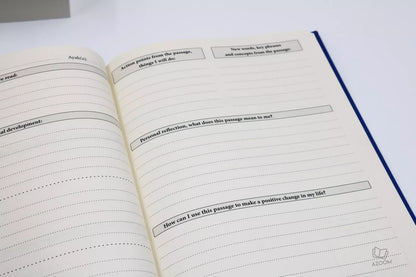 Ayah(s):
read:
al development:
Action points from the passage,
things I will do:
New words, key phrases
and concepts from the passage:
Personal reflection, what does this passage mean to me?
How can I use this passage to make a positive change in my life?
AZOOM